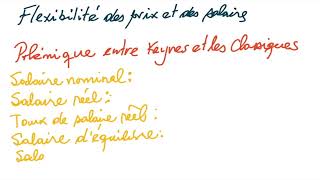 Flexibilité des prix et des salaire
Polémique entre Keynes et les Classiques
Salaire nominal:
Salaire réel:
Taux de salaire réel:
Salaire d'équilibre:
Sala